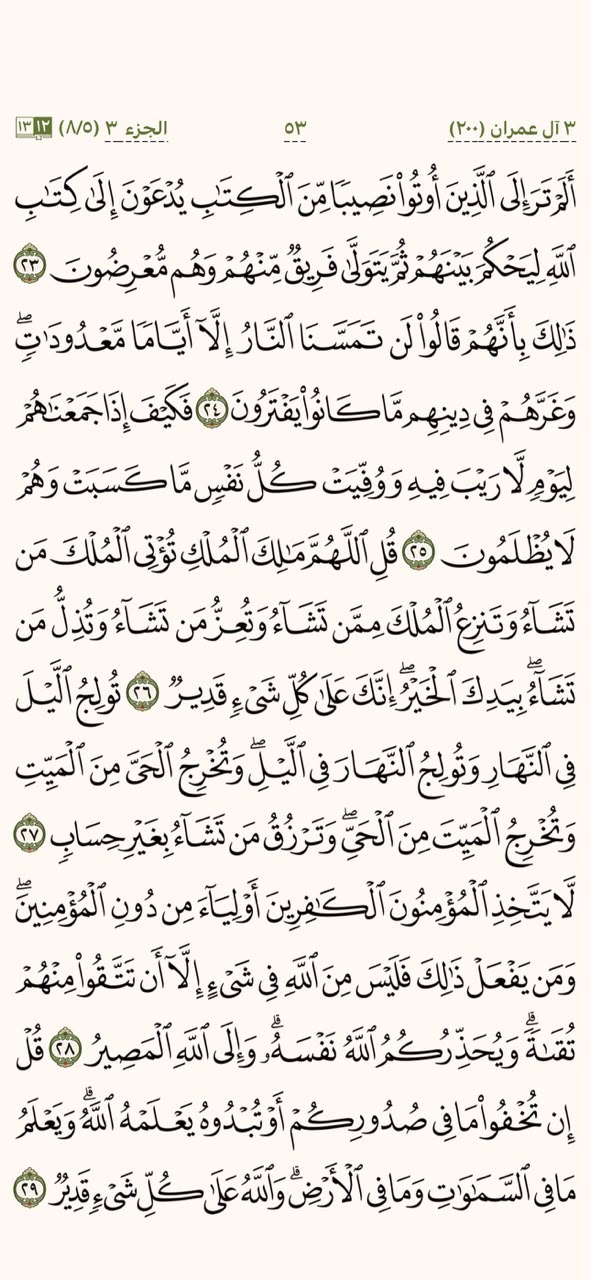 ٣ آل عمران (٢٠٠) ٥٣ الجزء ٣ (٨/٥) ١٢ ١٣
أَلَمْ تَرَ إِلَى ٱلَّذِينَ أُوتُوا۟ نَصِيبًا مِّنَ ٱلْكِتَٰبِ يُدْعَوْنَ إِلَىٰ كِتَٰبِ
ٱللَّهِ لِيَحْكُمَ بَيْنَهُمْ ثُمَّ يَتَوَلَّىٰ فَرِيقٌ مِّنْهُمْ وَهُم مُّعْرِضُونَ ٢٣
ذَٰلِكَ بِأَنَّهُمْ قَالُوا۟ لَن تَمَسَّنَا ٱلنَّارُ إِلَّآ أَيَّامًا مَّعْدُودَٰتٍ ۖ
وَغَرَّهُمْ فِى دِينِهِم مَّا كَانُوا۟ يَفْتَرُونَ ٢٤ فَكَيْفَ إِذَا جَمَعْنَٰهُمْ
لِيَوْمٍ لَّا رَيْبَ فِيهِ وَوُفِّيَتْ كُلُّ نَفْسٍ مَّا كَسَبَتْ وَهُمْ
لَا يُظْلَمُونَ ٢٥ قُلِ ٱللَّهُمَّ مَٰلِكَ ٱلْمُلْكِ تُؤْتِى ٱلْمُلْكَ مَن
تَشَآءُ وَتَنزِعُ ٱلْمُلْكَ مِمَّن تَشَآءُ وَتُعِزُّ مَن تَشَآءُ وَتُذِلُّ مَن
تَشَآءُ ۖ بِيَدِكَ ٱلْخَيْرُ ۖ إِنَّكَ عَلَىٰ كُلِّ شَىْءٍ قَدِيرٌ ٢٦ تُولِجُ ٱلَّيْلَ
فِى ٱلنَّهَارِ وَتُولِجُ ٱلنَّهَارَ فِى ٱلَّيْلِ ۖ وَتُخْرِجُ ٱلْحَىَّ مِنَ ٱلْمَيِّتِ
وَتُخْرِجُ ٱلْمَيِّتَ مِنَ ٱلْحَىِّ ۖ وَتَرْزُقُ مَن تَشَآءُ بِغَيْرِ حِسَابٍ ٢٧
لَّا يَتَّخِذِ ٱلْمُؤْمِنُونَ ٱلْكَٰفِرِينَ أَوْلِيَآءَ مِن دُونِ ٱلْمُؤْمِنِينَ ۖ
وَمَن يَفْعَلْ ذَٰلِكَ فَلَيْسَ مِنَ ٱللَّهِ فِى شَىْءٍ إِلَّآ أَن تَتَّقُوا۟ مِنْهُمْ
تُقَىٰةً ۗ وَيُحَذِّرُكُمُ ٱللَّهُ نَفْسَهُۥ ۗ وَإِلَى ٱللَّهِ ٱلْمَصِيرُ ٢٨ قُلْ
إِن تُخْفُوا۟ مَا فِى صُدُورِكُمْ أَوْ تُبْدُوهُ يَعْلَمْهُ ٱللَّهُ ۗ وَيَعْلَمُ
مَا فِى ٱلسَّمَٰوَٰتِ وَمَا فِى ٱلْأَرْضِ ۗ وَٱللَّهُ عَلَىٰ كُلِّ شَىْءٍ قَدِيرٌ ٢٩